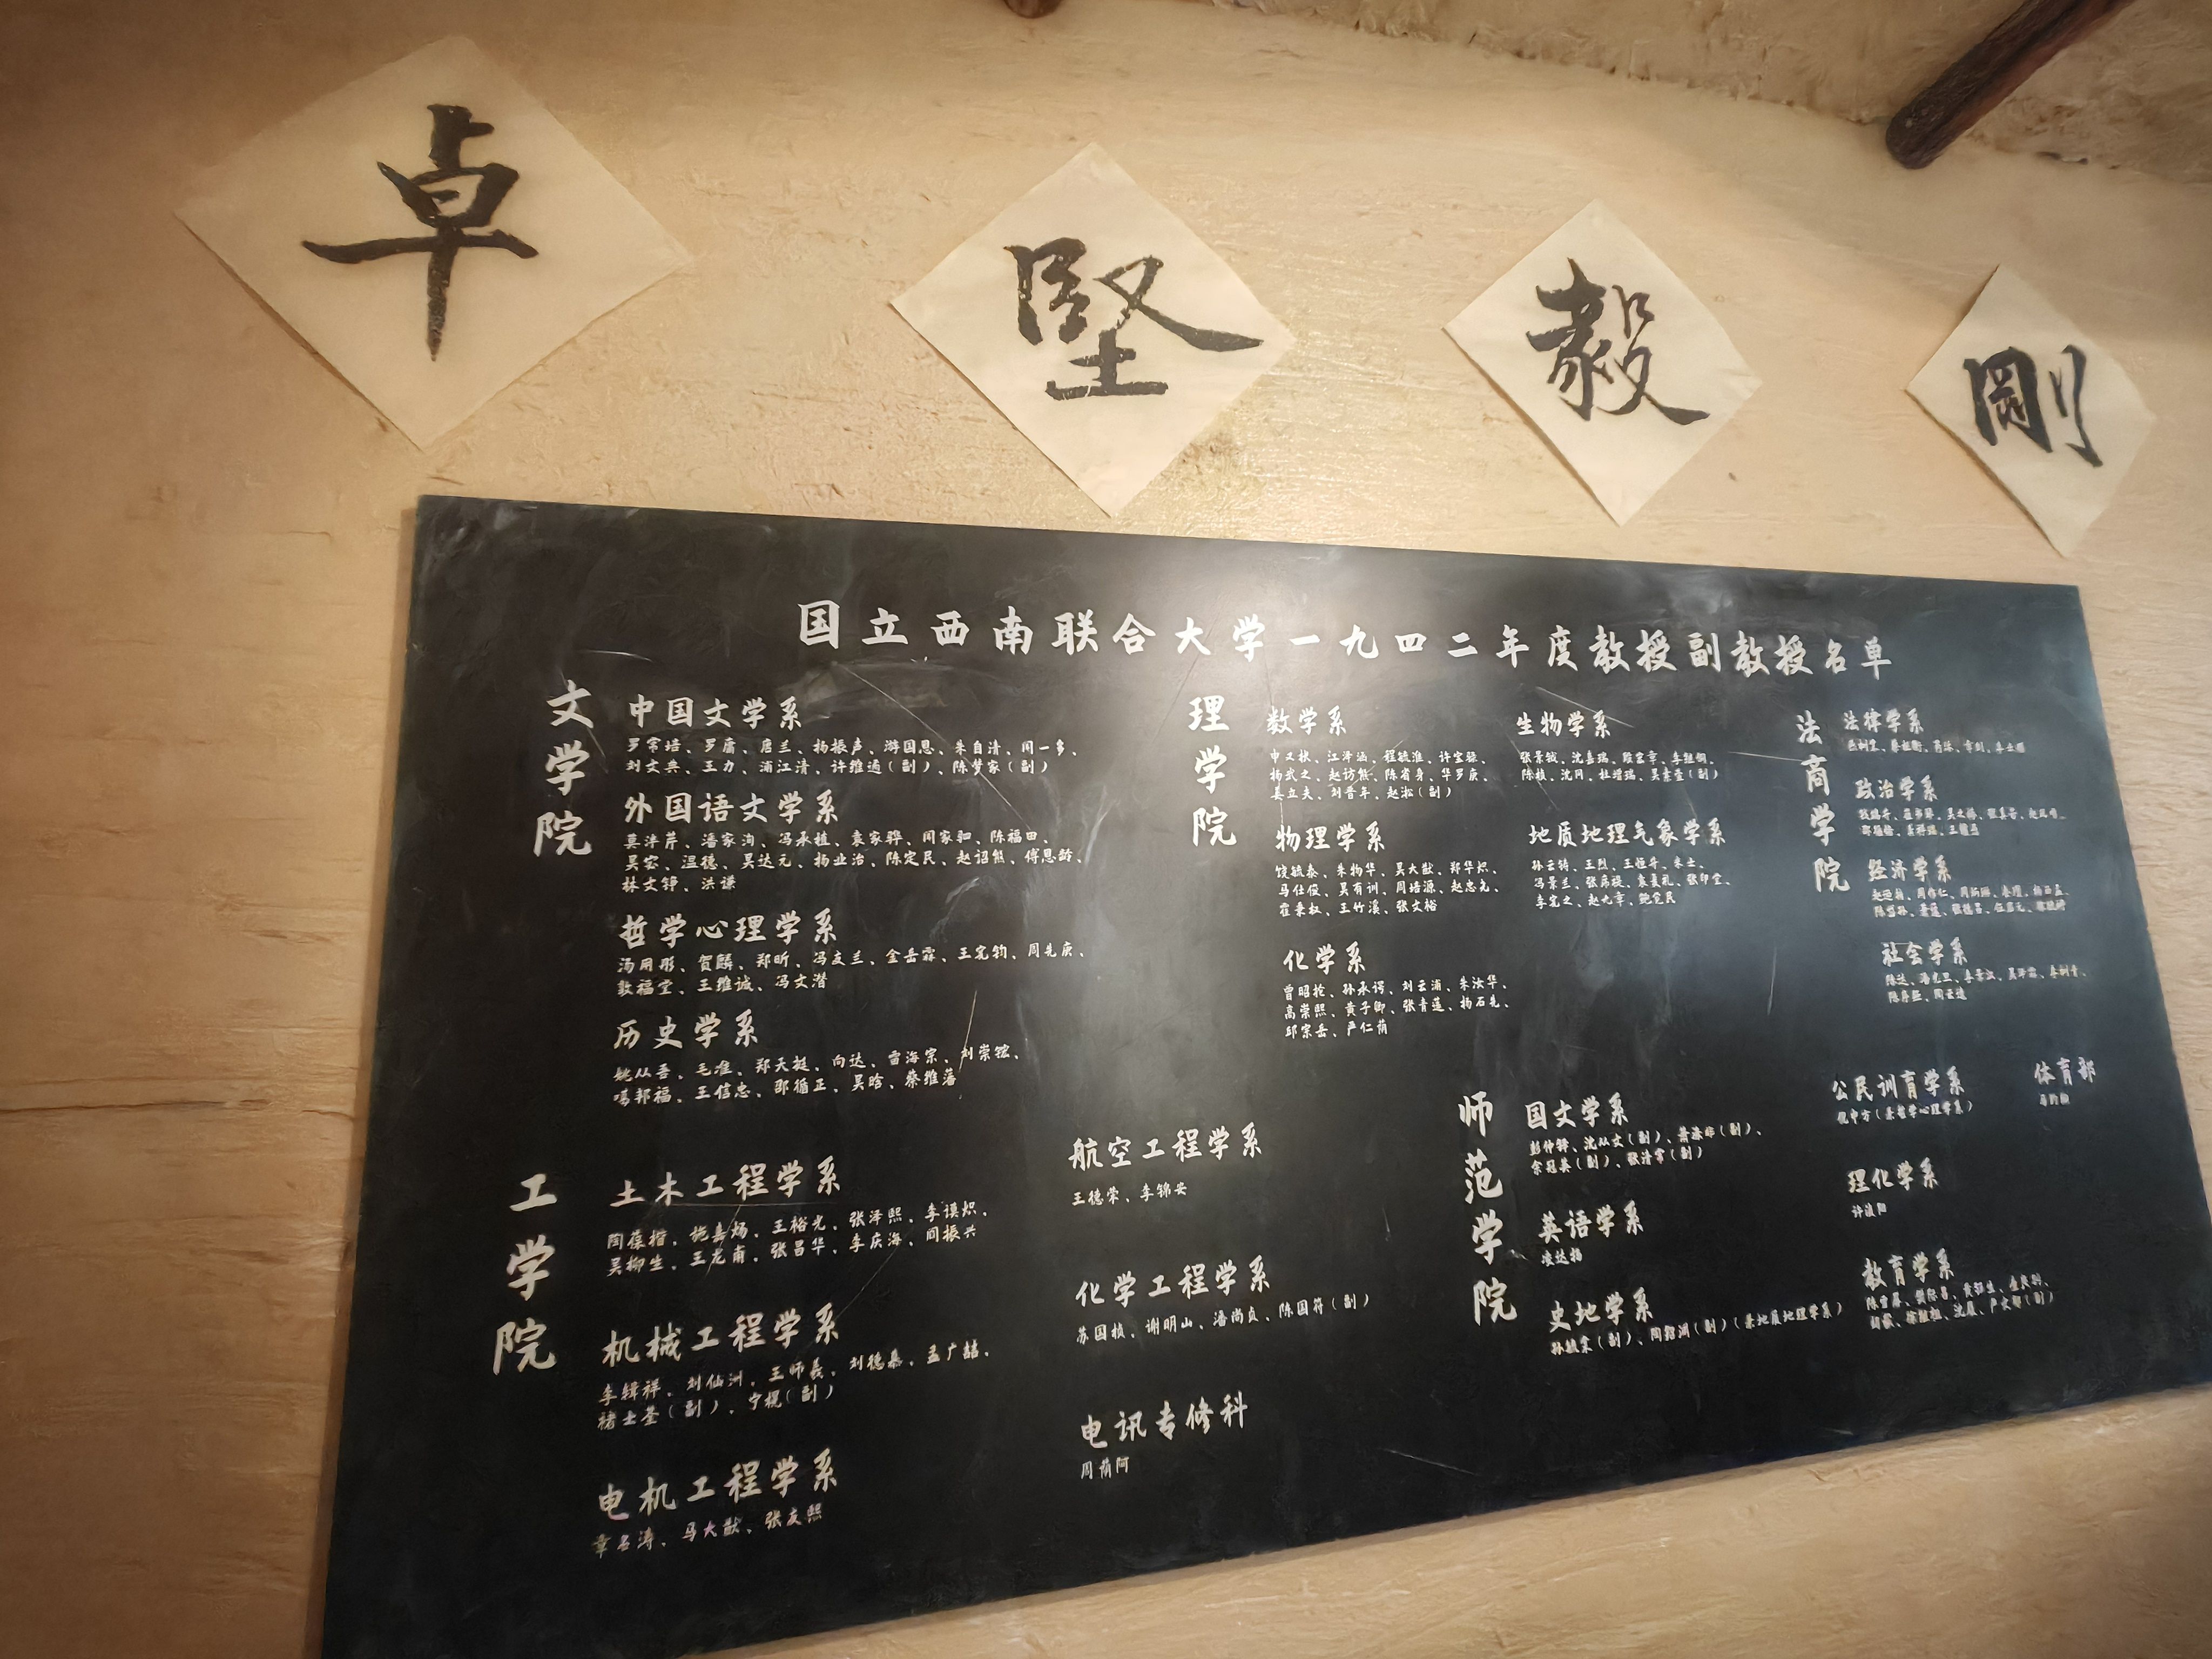 卓 堅 毅 剛
国立西南联合大学一九四二年度教授副教授名单
文学院
中国文学系
罗常培、罗庸、唐兰、杨振声、游国恩、朱自清、闻一多、
刘文典、王力、浦江清、许维遹(副)、陈梦家(副)
外国语文学系
莫泮芹、潘家洵、冯承植、袁家骅、闻家驷、陈福田、
吴宓、温德、吴达元、杨业治、陈定民、赵诏熊、傅恩龄、
林文铮、洪谦
哲学心理学系
汤用彤、贺麟、郑昕、冯友兰、金岳霖、王宪钧、周先庚、
敦福堂、王维诚、冯文潜
历史学系
姚从吾、毛准、郑天挺、向达、雷海宗、刘崇鋐、
噶邦福、王信忠、邵循正、吴晗、蔡维藩
理学院
数学系
申又枨、江泽涵、程毓淮、许宝騄、
杨武之、赵访熊、陈省身、华罗庚、
姜立夫、刘晋年、赵淞(副)
物理学系
饶毓泰、朱物华、吴大猷、郑华炽、
马仕俊、吴有训、周培源、赵忠尧、
霍秉权、王竹溪、张文裕
化学系
曾昭抡、孙承谔、刘云浦、朱汝华、
高崇熙、黄子卿、张青莲、杨石先、
邱宗岳、严仁荫
生物学系
张景钺、沈嘉瑞、殷宏章、李继侗、
陈桢、沈同、杜增瑞、吴素萱(副)
地质地理气象学系
孙云铸、王烈、王恒升、米士、
冯景兰、张席禔、袁复礼、张印堂、
李宪之、赵九章、鲍觉民
法商学院
法律学系
燕树棠、蔡枢衡、章剑、李士彤
政治学系
钱端升、张奚若、
邵循恪、王赣愚
经济学系
赵迺抟、周作仁、周炳琳、秦瓒、杨西孟、
陈岱孙、萧蘧、张德昌、伍启元、徐毓枬
社会学系
陈达、潘光旦、李景汉、吴泽霖、李树青、
陈序经、陶云逵
工学院
土木工程学系
陶葆楷、施嘉炀、王裕光、张泽熙、李谟炽、
吴柳生、王龙甫、张昌华、李庆海、阎振兴
机械工程学系
李辑祥、刘仙洲、王师羲、刘德慕、孟广喆、
褚士荃(副)、宁榥(副)
电机工程学系
章名涛、马大猷、张友熙
航空工程学系
王德荣、李锦安
化学工程学系
苏国桢、谢明山、潘尚贞、陈国符(副)
电讯专修科
周荫阿
师范学院
国文学系
彭仲铎、沈从文(副)、萧涤非(副)、
余冠英(副)、张清常(副)
英语学系
凌达扬
史地学系
孙毓棠(副)、陶绍渊(副)(兼地质地理学系)
公民训育学系
倪中方(兼哲学心理学系)
理化学系
许浈阳
教育学系
陈雪屏、樊际昌、黄钰生、
胡毅、徐继祖、沈履、严文郁(副)
体育部
马约翰